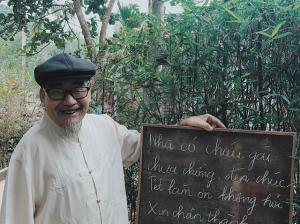 Nhà có cháu gái
chưa chồng, đến chúc
Tết làm ơn không hỏi
Xin chân th